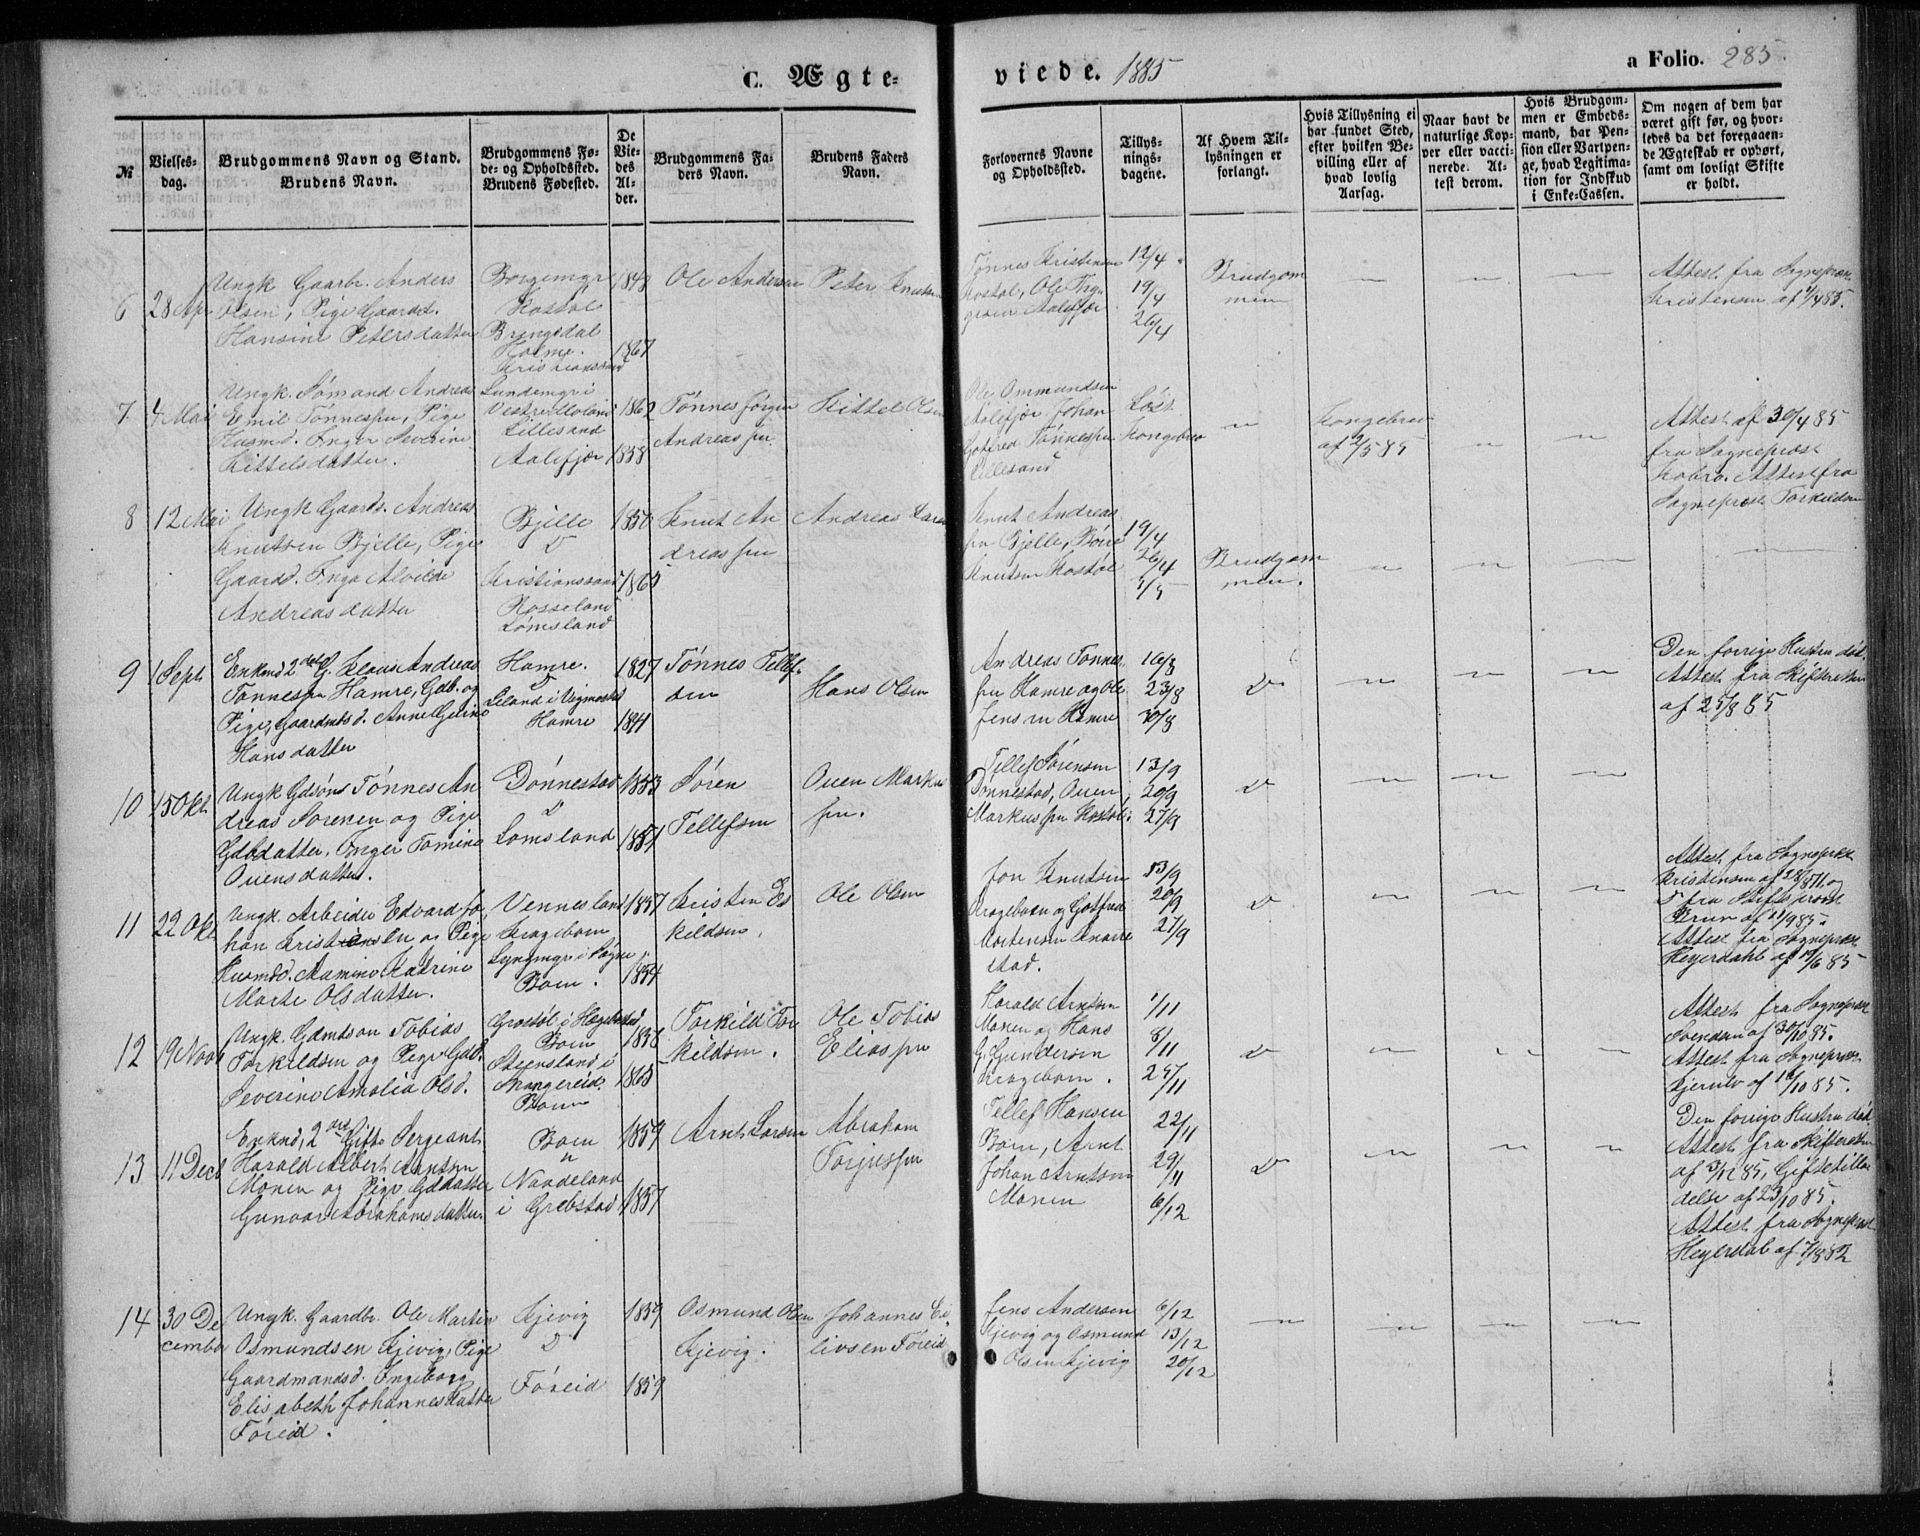 C. Ægte-
viede. 1885
a Folio. 285.
№
Vielses-
dag.
Brudgommens Navn og Stand.
Brudens Navn.
Brudgommens Fø-
de- og Opholdssted.
Brudens Fødested.
De
Vie-
des
Al-
der.
Brudgommens Fa-
ders Navn.
Brudens Faders
Navn.
Forlovernes Navne
og Opholdssted.
Tillys-
nings-
dagene.
Af Hvem Til-
lysningen er
forlangt.
Hvis Tillysning ei
har fundet Sted,
efter hvilken Be-
villing eller af
hvad lovlig
Aarsag.
Naar havt de
naturlige Kop-
per eller vacci-
nerede. At-
test derom.
Hvis Brudgom-
men er Embeds-
mand, har Pen-
sion eller Vartpen-
ge, hvad Legitima-
tion for Indskud
i Enke-Cassen.
Om nogen af dem har
været gift før, og hvor-
ledes da det foregaaen-
de Ægteskab er ophørt,
samt om lovligt Skifte
er holdt.
6
28 Apr
Ungk. Gaardbr. Anders
Olsen, Pige Gaardd.
Hansine Petersdatter
Kostøl
Brengsdal
Holme.
Kristianssand
1848
1867
Ole Andersen
Peter Knutsen
Tønnes Kristensen
Kostøl, Ole
Aalefjær
12/4
19/4
26/4
Brudgom
men
Attest fra Sognepræst
Kristensen af 1/4 85.
7
4 Mai
Ungk. Sømand Andreas
Emil Tønnessen, Pige
Husmd. Inger Severine
Kittelsdatter.
Vestre Moland
Lillesand
Aalefjær
1862
1858
Tønnes Jørgen
Andreassen
Kittel Olsen
Ole Ommundsen
Aalefjær Johan
Gotfred Tønnessen
Lillesand
Løst
Kongebrev
Kongebrev
af 2/5 85
Attest af 30/4 85
fra Sognepræst
Kobro. Attest fra
Sognepræst Torkildsen
8
12 Mai
Ungk Gaards. Andreas
Knutsen Bjelle, Pige
Gaardd. Inga Alvilde
Andreasdatter
Bjelle
Kristianssand
Rosseland
Lømsland
1850
1865
Knut An
dreassen
Andreas
Knut Andreas
sen Bjelle, Børre
Knutsen Kostøl
19/4
26/4
3/5
Brudgom
men.
9
1 Sept
Enkmd 2den G. Klaus Andreas
Tønnessen Hamre, Gdb. og
Pige, Gaardmdsd. Anne Geline
Hansdatter
Hamre.
Leland i Vigmostad
Hamre
1827
1841
Tønnes Tellef
sen
Hans Olsen
Andreas Tønnes
sen Hamre og Ole
Jensen Hamre
16/8
23/8
30/8
Den forrige Hustru død.
Attest fra Skifteretten
af 25/8 85
10
15 Okt
Ungk Gdsøn Tønnes An
dreas Sørensen og Pige
Gdbdatter. Inger Tomine
Ouensdatter.
Dønnestad
Lømsland
1853
1851
Søren
Tellefsen
Ouen Markus
sen.
Tellef Sørensen
Dønnestad, Ouen
Markussen Kostøl
13/9
20/9
27/9
11
22 Okt
Ungk. Arbeider Edvard Jo
han Kristensen og Pige
Husmd. Mamine Katrine
Marte Olsdatter.
Vennesland
Krageboen
Lyngmyr i Søgne
Boen.
1857
1854
Kristen Es
kildsen.
Ole Olsen
Jon Knutsen
Krageboen og Gotfred
Mortensen Knarre
stad.
13/9
20/9
27/9
Attest fra Sognepræst
Kristensen af
fra Stiftsprovst
Bruun af 11/9 85.
Attest fra Sognepræst
Heyerdahl af 19/6 85
12
19 Novb
Ungk. Gdmdsøn Tobias
Torkildsen og Pige Gdb.
Severine Amalia Olsd.
Grostøl i Hægebostad
Boen
Steensland i
Spangereid.
Boen
1858
1863
Torkild Tor
kildsen.
Ole Tobias
Eliassen
Harald Arntsen
Monen og Hans
G. Gundersen
Krageboen.
1/11
8/11
Attest fra Sognepræst
Svendsen af 30/10 85.
Attest fra Sognepræst
Kjerulv af 10/10 85.
13
11 Decb
Enkmd, 2den Gifte Sergeant
Harald Albert Arntsen
Monen og Pige Gddatter
Gunvor Abrahamsdatter
Boen
Naadeland
i Grebstad
1859
1857
Arnt Larsen
Abraham
Torjussen
Tellef Hansen
Boen, Arnt
Johan Arntsen
Monen
22/11
29/11
6/12
Den forrige Hustru død
Attest fra Skifteretten
af 3/12 85, Giftetilla
delse af 23/10 85.
Attest fra Sognepræst
Heyerdal af 7/8 82
14
30 De
cember
Ungk. Gaardbr. Ole Martin
Osmundsen Kjevig, Pige
Gaardmandsd. Ingeborg
Elisabeth Johannesdatter
Føreid.
Kjevig
Føreid
1859
1859
Osmund Olsen
Kjevig.
Johannes Ei
livsen Føreid
Jens Andersen
Kjevig og Osmund
Olsen Kjevig
6/12
13/12
20/12